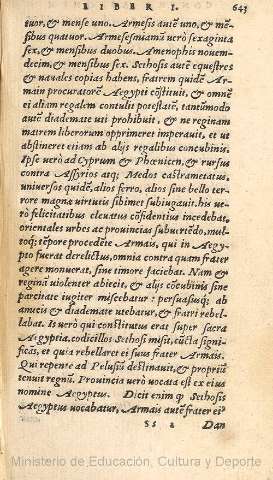 LIBER I. 643
tuor, & mense uno. Armesis autē uno, & mē-
sibus quatuor. Armesesmiamū uerò sexaginta
sex, & mensibus duobus. Amenophis nouem-
decim, & mensibus sex. Sethosis autē equestres
& nauales copias habens, fratrem quidē Ar-
main procuratorē Aegypti cōstituit, & omnē
ei aliam regalem contulit potestatē, tantūmodo
autē diademate uti prohibuit, & ne reginam
matrem liberorum opprimeret imperauit, et ut
abstineret etiam ab alijs regalibus concubinis.
Ipse uerò ad Cyprum & Phœnicen, & rursus
contra Assyrios atq; Medos castrametatus,
uniuersos quidē, alios ferro, alios sine bello ter-
rore magnæ uirtutis sibimet subiugauit. his ue-
rò felicitatibus eleuatus cōfidentius incedebat,
orientales urbes ac prouincias subuertēdo, mul-
toq; tēpore procedēte Armais, qui in Aegy-
pto fuerat derelictus, omnia contra quam frater
agere monuerat, sine timore faciebat. Nam &
reginā uiolenter abiecit, & alijs cōcubinis sine
parcitate iugiter miscebatur: persuasusq; ab
amicis & diademate utebatur, & fratri rebel-
labat. Is uerò qui constitutus erat super sacra
Aegyptia, codicillos Sethosi misit, cūcta signi-
ficās, et quia rebellaret ei suus frater Armais.
Qui repente ad Pelusiū destinauit, & propriū
tenuit regnū. Prouincia uerò uocata est ex eius
nomine Aegyptus. Dicit enim q Sethosis
Aegyptus uocabatur, Armais autē frater ei9
Ss 2 Dan
Ministerio de Educación, Cultura y Deporte